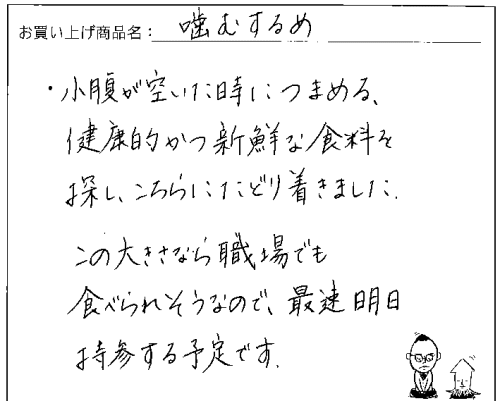 お買い上げ商品名：噛むするめ
・小腹が空いた時につまめる、
健康的かつ新鮮な食料を
探し、こちらにたどり着きました。
この大きさなら職場でも
食べられそうなので、最速明日
持参する予定です。